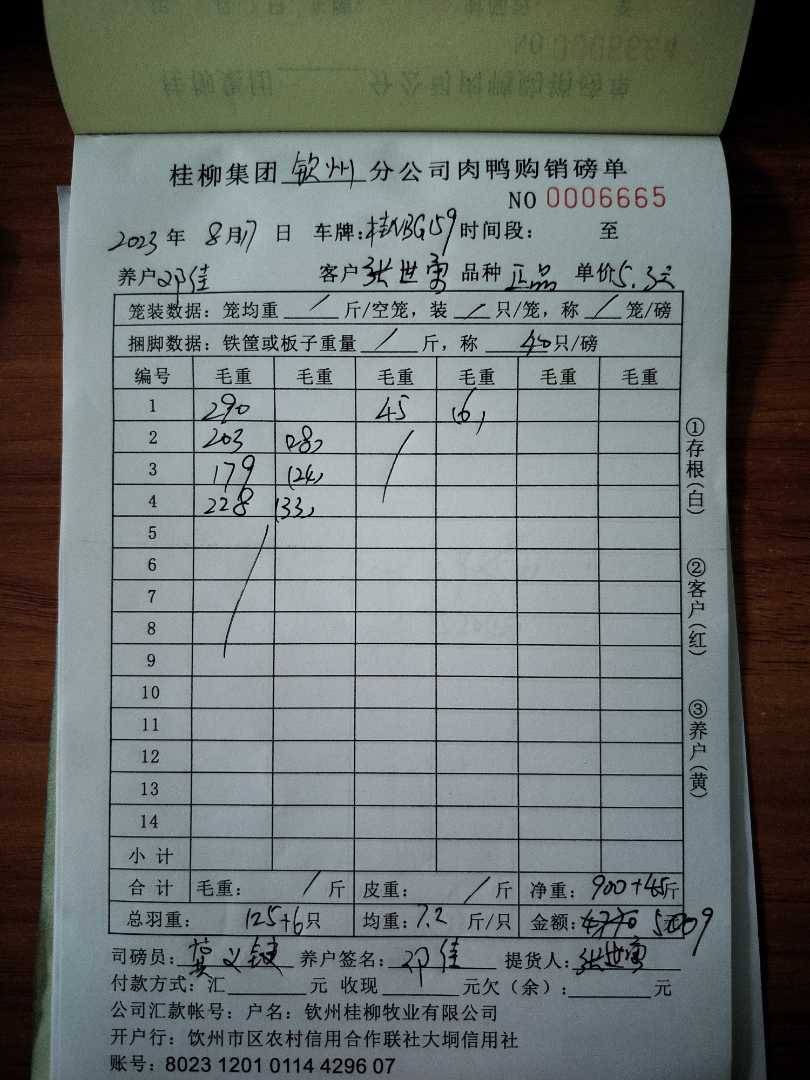 桂柳集团 钦州 分公司肉鸭购销磅单
NO 0006665
2023年 8月17日 车牌:桂NBG159 时间段: 至
养户 邓佳 客户 张世勇 品种 正品 单价 5.3元
笼装数据: 笼均重 / 斤/空笼, 装 / 只/笼, 称 / 笼/磅
捆脚数据: 铁筐或板子重量 / 斤, 称 40只/磅
编号 毛重 毛重 毛重 毛重 毛重 毛重
1 290 45 (6)
2 203 (28)
3 179 (24)
4 228 (33)
5
6
7
8
9
10
11
12
13
14
小计
合计 毛重: / 斤 皮重: / 斤 净重: 900+45斤
总羽重: 125+6只 均重: 7.2 斤/只 金额: 4770 5009
司磅员: 义 养户签名: 邓佳 提货人: 张世勇
付款方式: 汇 元 收现 元欠(余): 元
公司汇款帐号: 户名: 钦州桂柳牧业有限公司
开户行: 饮州市区农村信用合作联社大垌信用社
账号: 8023 1201 0114 4296 07
①存根(白)
②客户(红)
③养户(黄)